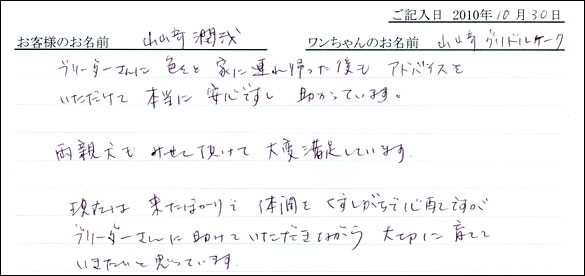 ご記入日 2010年10月30日
お客様のお名前 山崎 潤哉 ワンちゃんのお名前 山崎ブリドルケーク
ブリーダーさんに 色々と 家に連れ帰った後も アドバイスを
いただけて 本当に 安心ですし 助かっています。
両親犬も みせて頂けて 大変満足しています。
現在は 来たばかりで 体調を くずしがちで心配ですが
ブリーダーさんに助けていただきながら 大切に育てて
いきたいと思っています